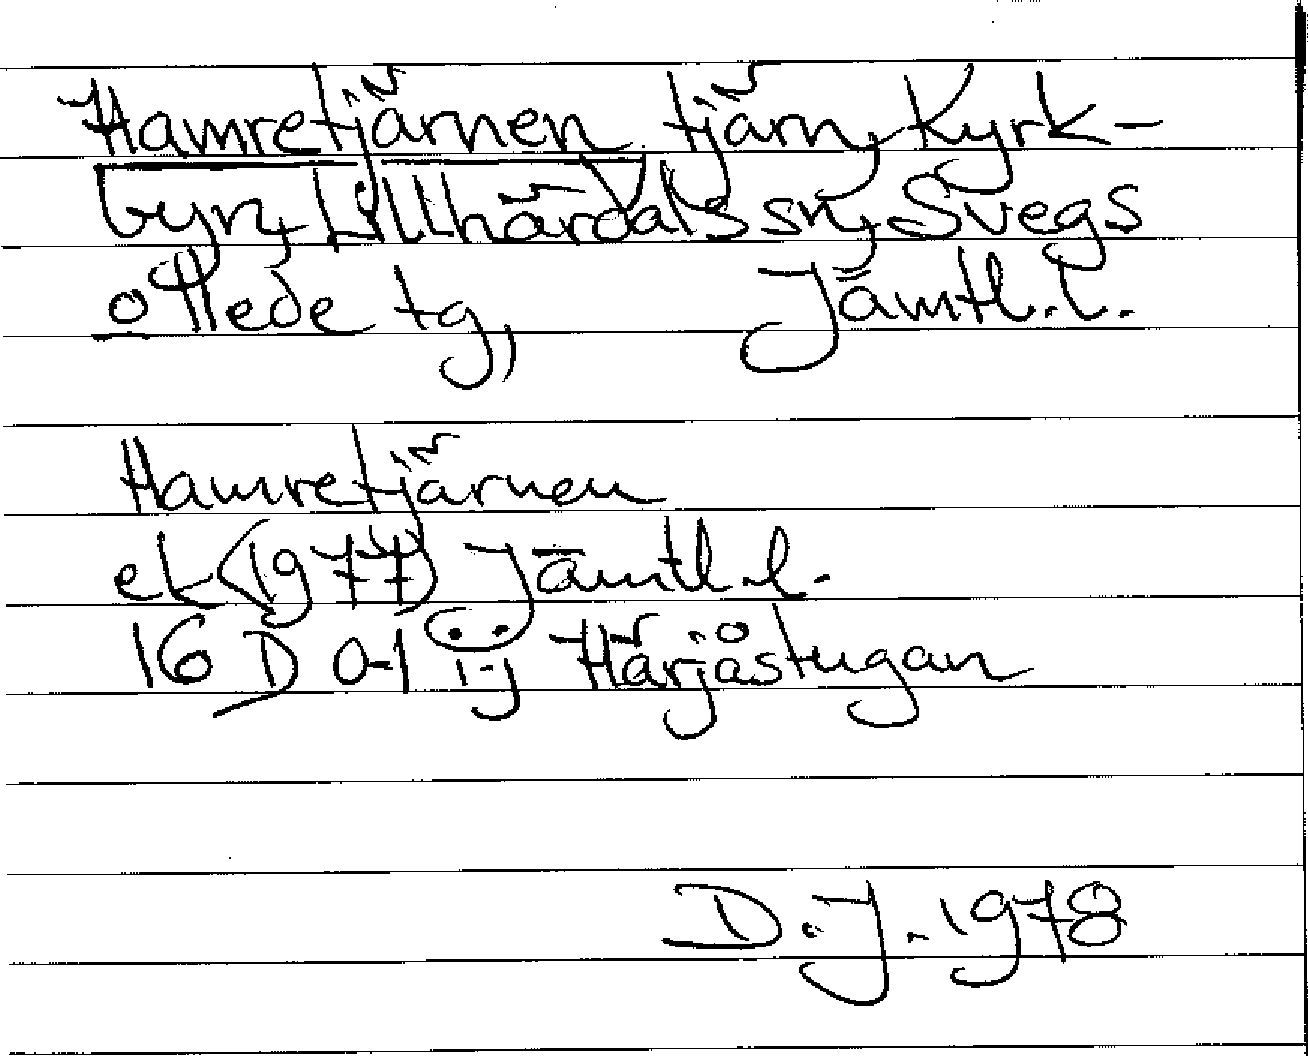 Hamretjärnen, tjärn, Kyrk-
byn, Lillhärdals sn, Svegs
o Hede tg, Jämtl. l.
Hamretjärnen
ek (1977) Jämtl. l.
16 D 0-1 i-j Härjåstugan
D. J. 1978